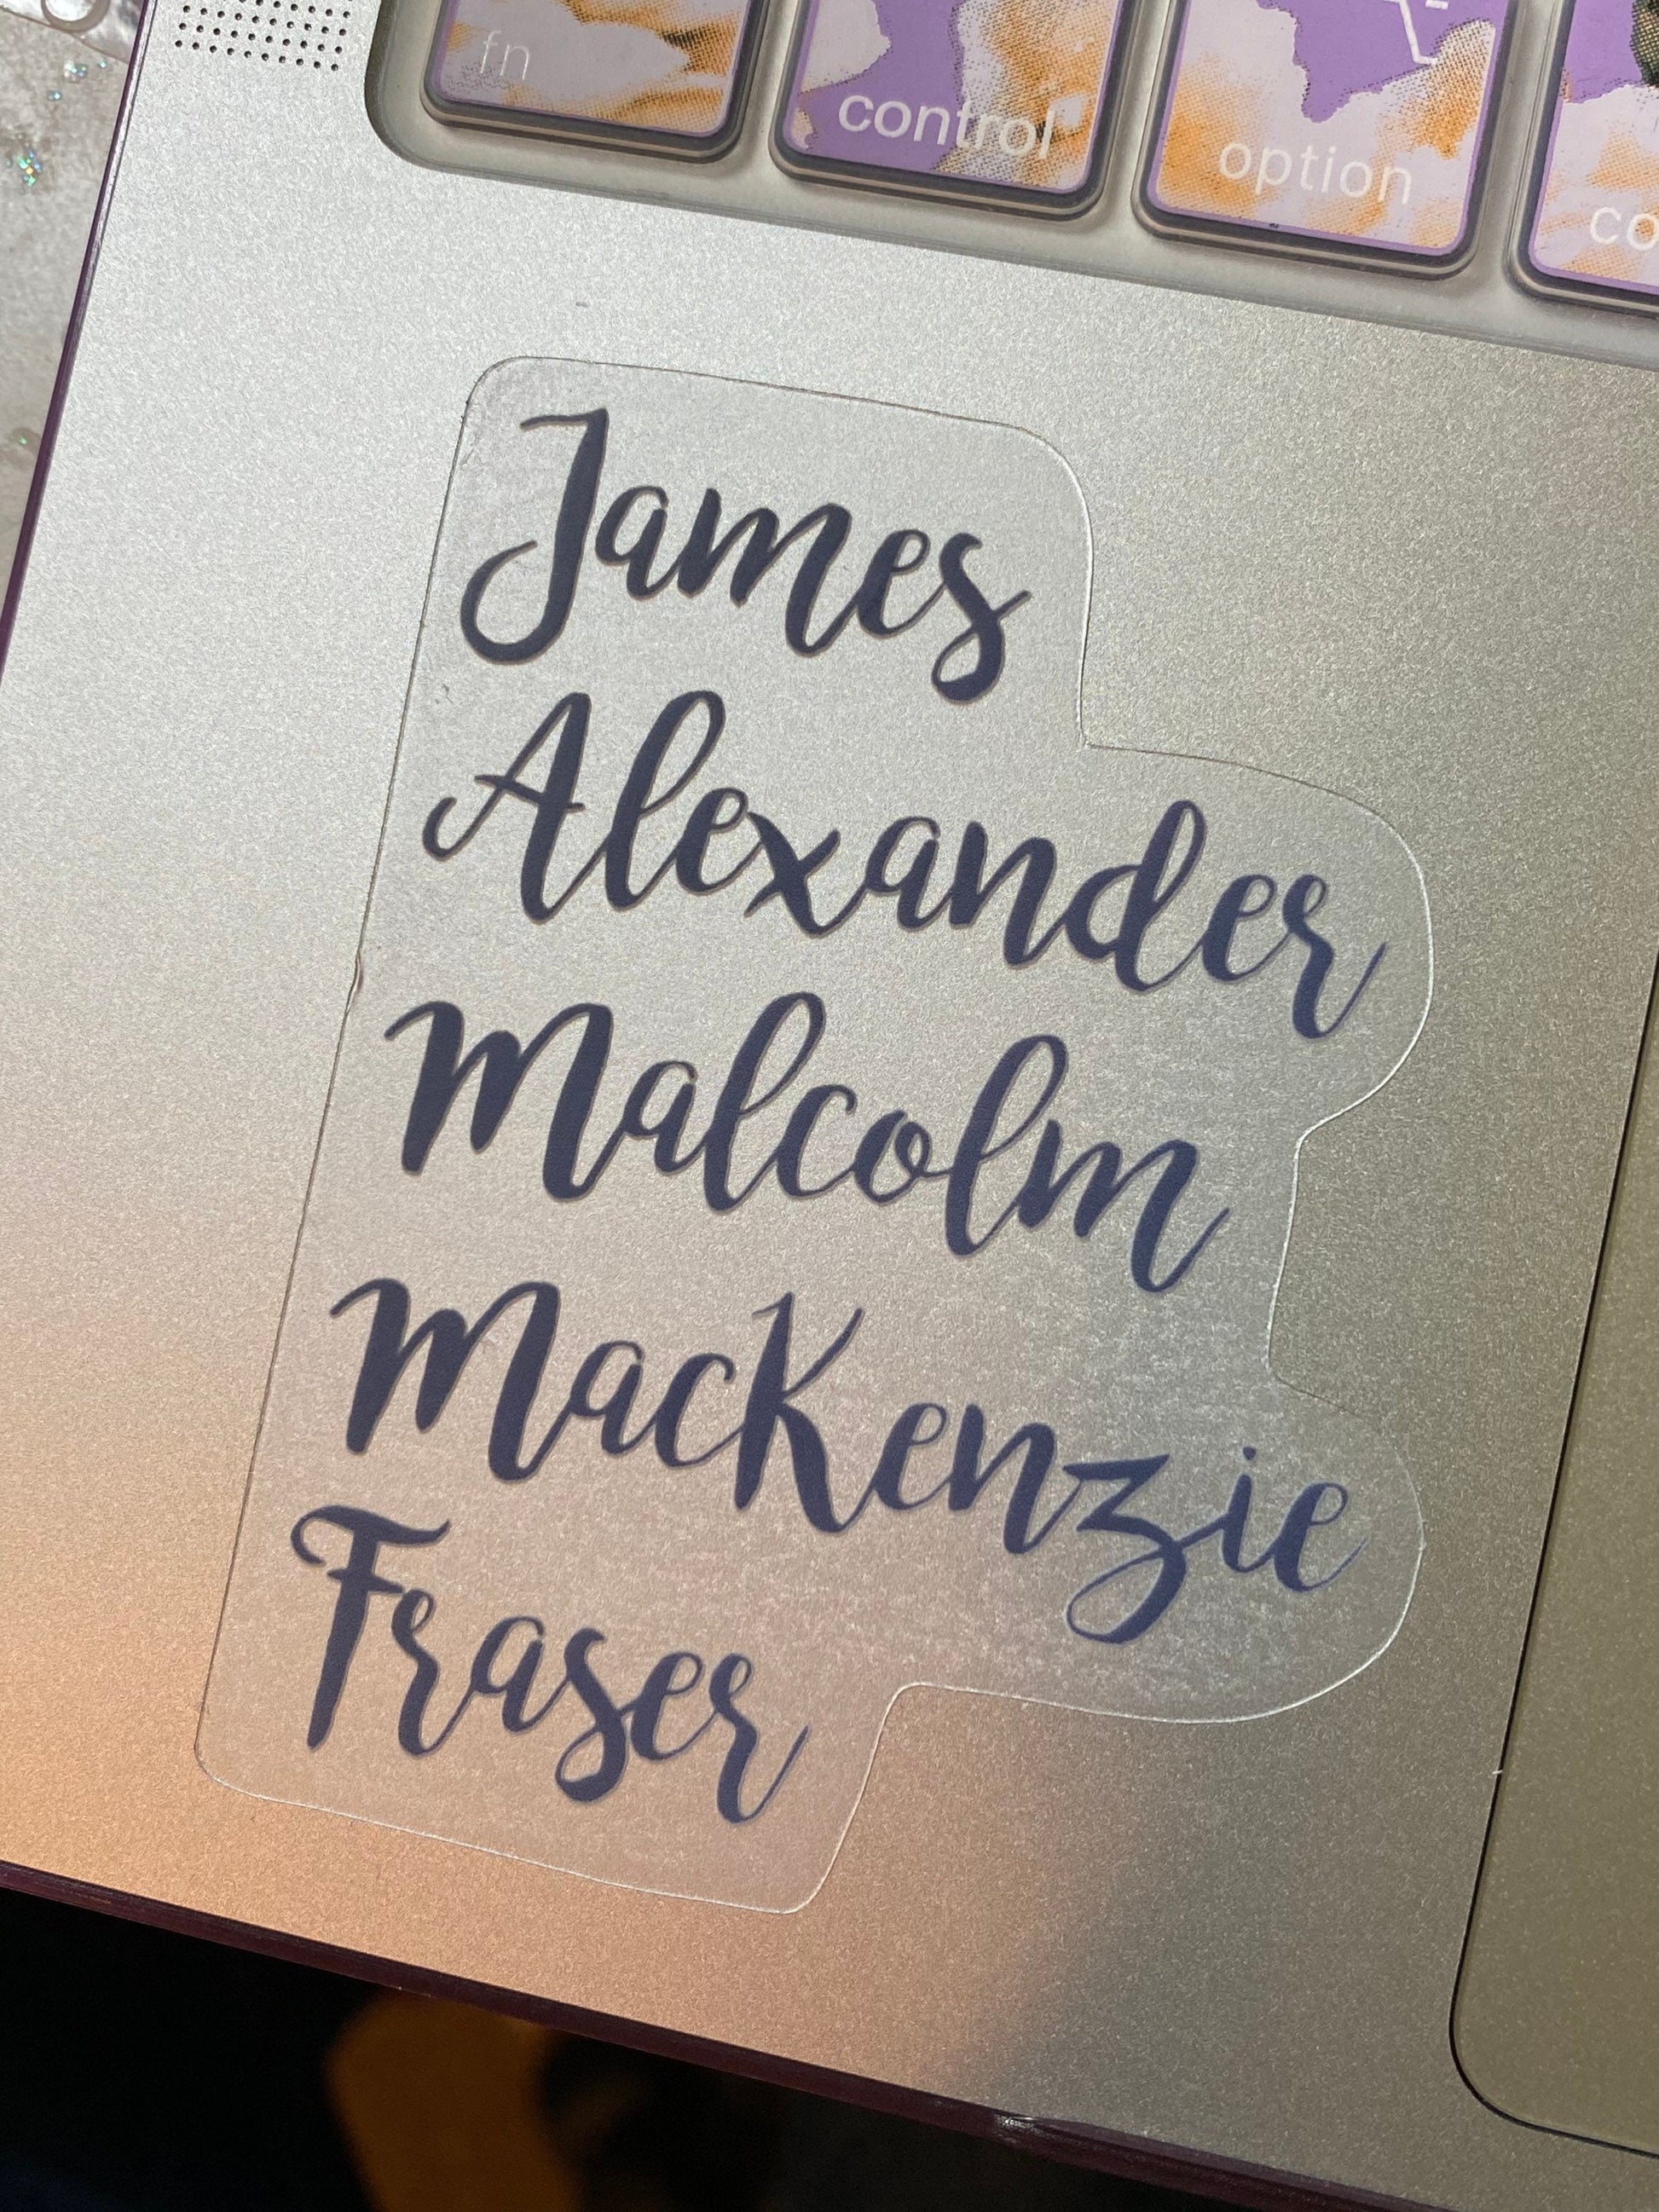 fn
control
option
co
James
Alexander
Malcolm
MacKenzie
Fraser